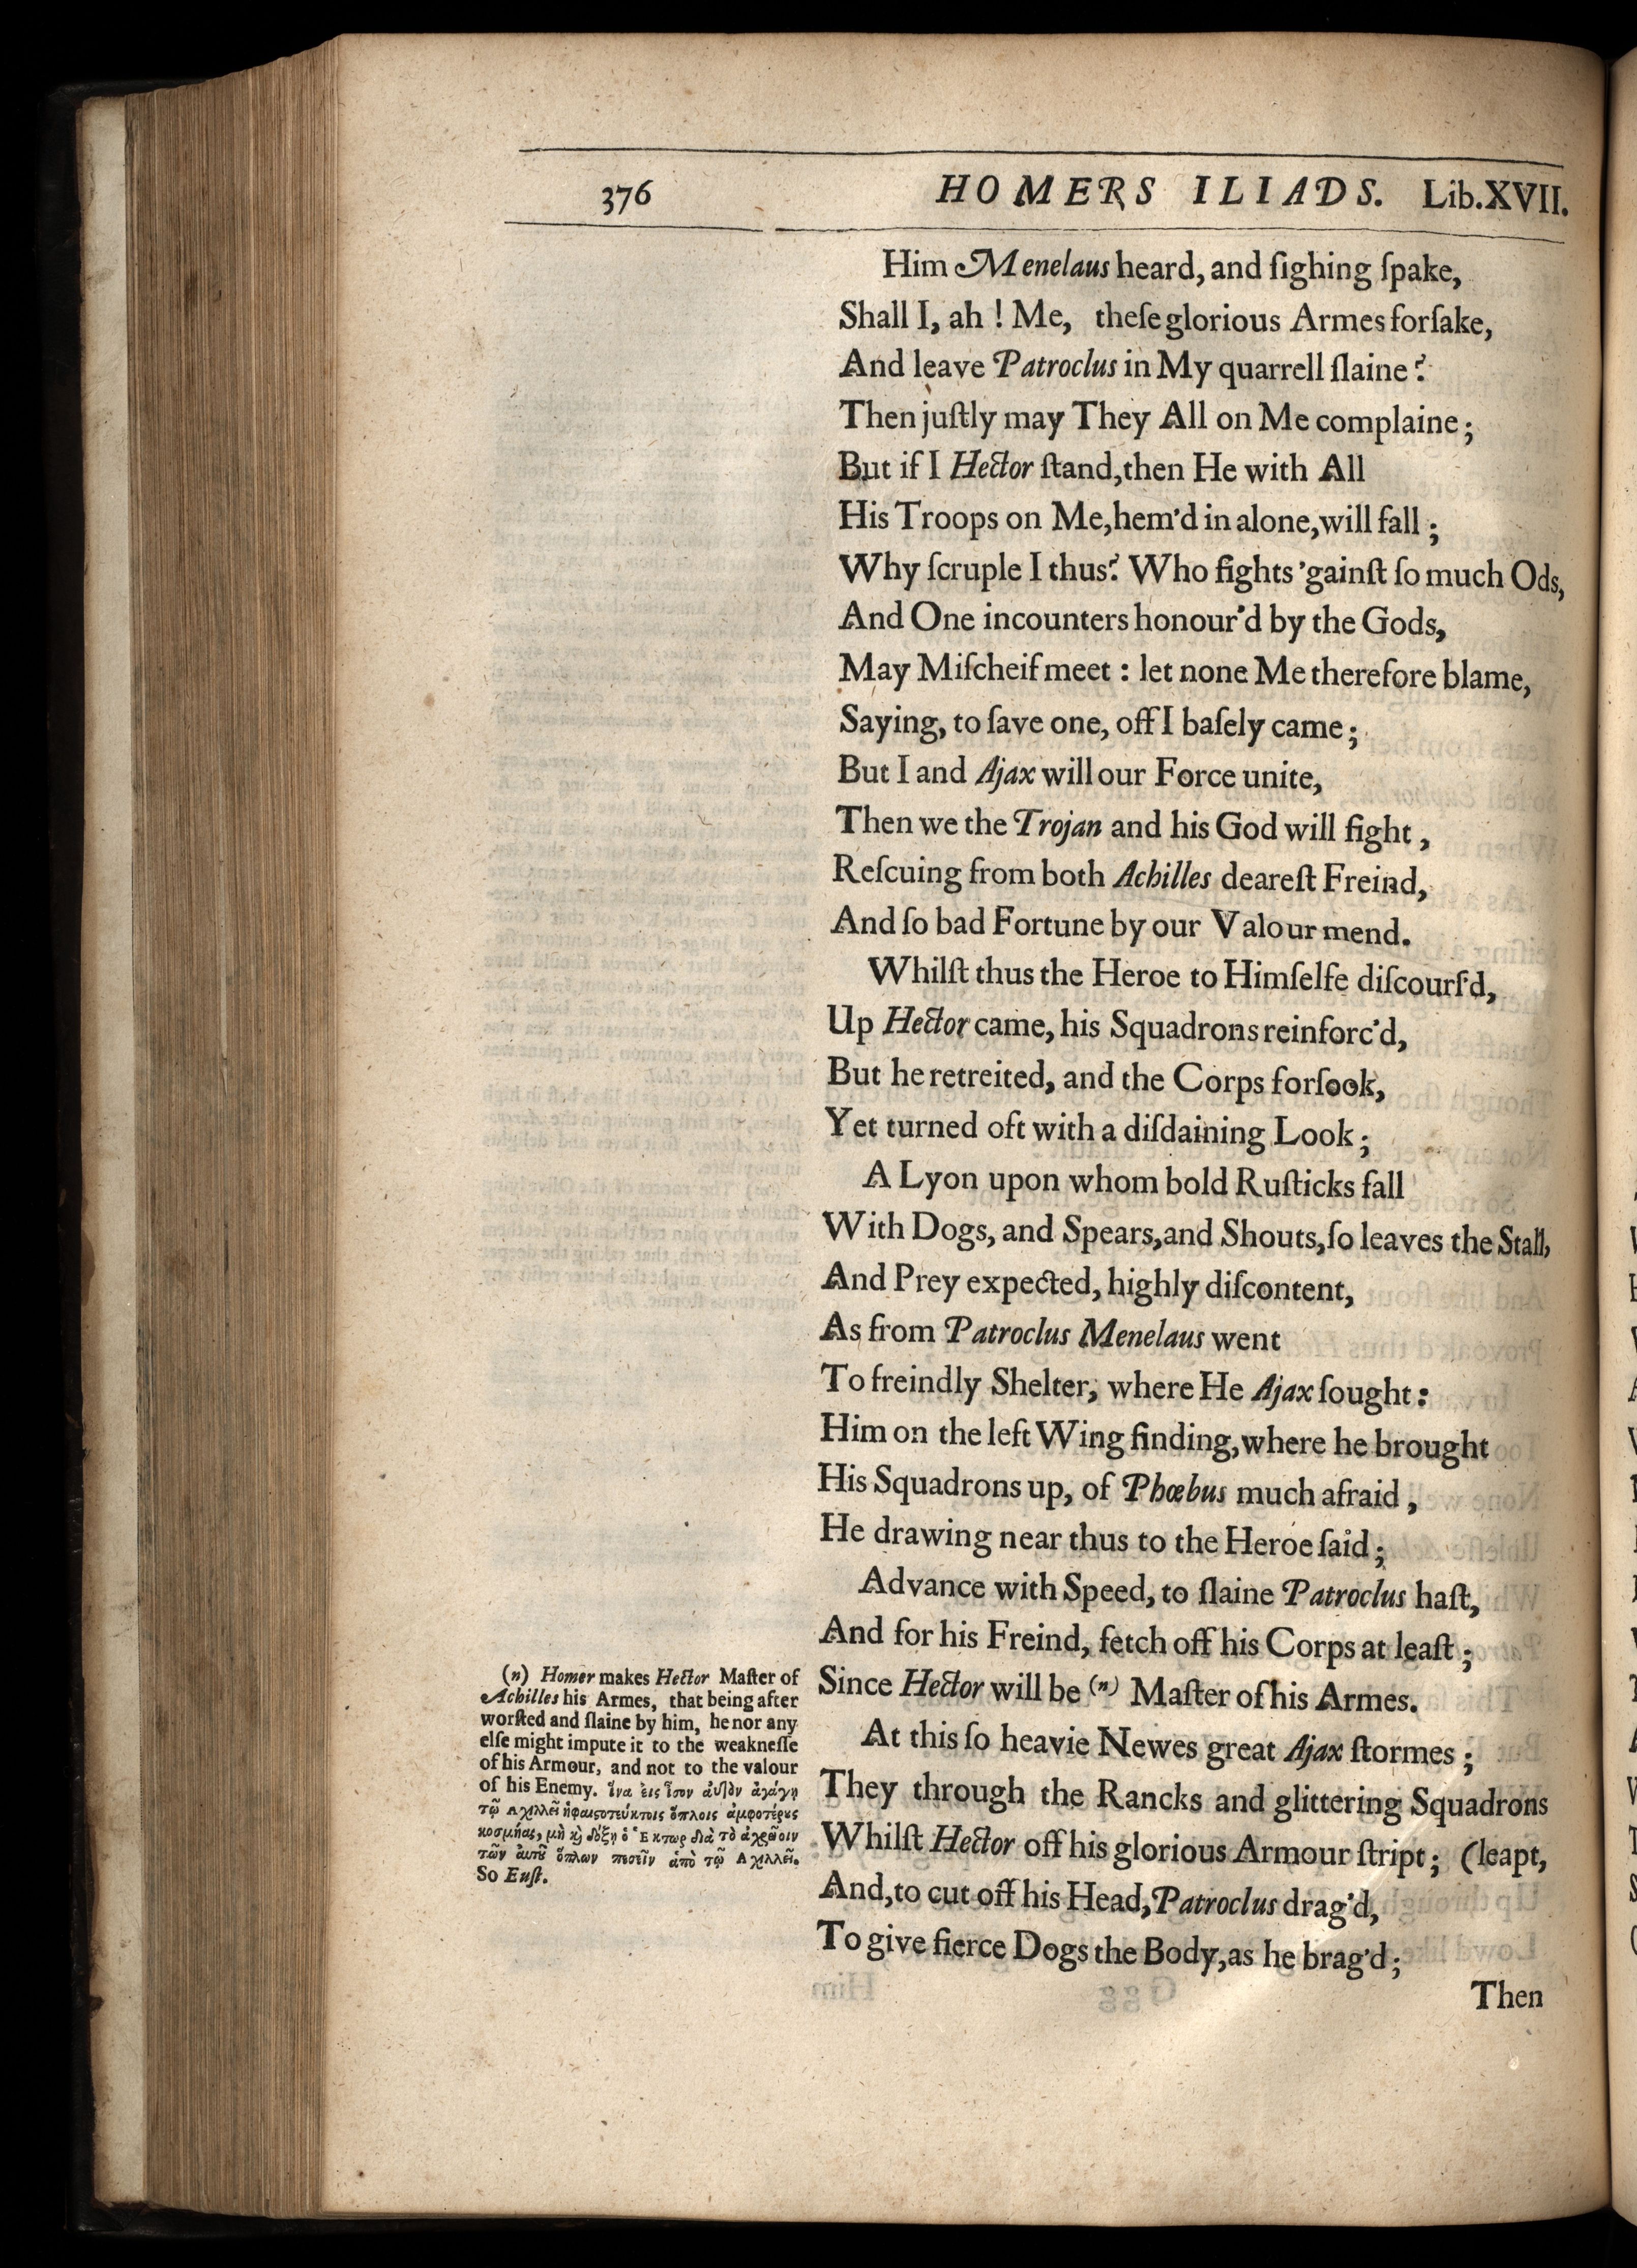 376 HOMERS ILIADS. Lib.XVII.
Him Menelaus heard, and ſighing ſpake,
Shall I, ah ! Me, theſe glorious Armes forſake,
And leave Patroclus in My quarrell ſlaine?
Then juſtly may They All on Me complaine;
But if I Hector ſtand, then He with All
His Troops on Me, hem'd in alone, will fall;
Why ſcruple I thus? Who fights 'gainſt ſo much Ods,
And One incounters honour'd by the Gods,
May Miſcheif meet : let none Me therefore blame,
Saying, to ſave one, off I baſely came;
But I and Ajax will our Force unite,
Then we the Trojan and his God will fight,
Reſcuing from both Achilles deareſt Freind,
And ſo bad Fortune by our Valour mend.
Whilſt thus the Heroe to Himſelfe diſcourſ'd,
Up Hector came, his Squadrons reinforc'd,
But he retreited, and the Corps forſook,
Yet turned oft with a diſdaining Look;
A Lyon upon whom bold Ruſticks fall
With Dogs, and Spears, and Shouts, ſo leaves the Stall,
And Prey expected, highly diſcontent,
As from Patroclus Menelaus went
To freindly Shelter, where He Ajax ſought:
Him on the left Wing finding, where he brought
His Squadrons up, of Phœbus much afraid,
He drawing near thus to the Heroe ſaid;
Advance with Speed, to ſlaine Patroclus haſt,
And for his Freind, fetch off his Corps at leaſt;
Since Hector will be (n) Maſter of his Armes.
At this ſo heavie Newes great Ajax ſtormes;
They through the Rancks and glittering Squadrons
Whilſt Hector off his glorious Armour ſtript; (leapt,
And, to cut off his Head, Patroclus drag'd,
To give fierce Dogs the Body, as he brag'd;
Then
(n) Homer makes Hector Maſter of
Achilles his Armes, that being after
worſted and ſlaine by him, he nor any
elſe might impute it to the weakneſſe
of his Armour, and not to the valour
of his Enemy. ἵνα εἰς ἶσον αὐτὸν ἀγάγῃ
τῷ Αχιλλεῖ ἡφαιςοτεύκτοις ὅπλοις ἀμφοτέρους
κοσμήσας, μὴ καὶ δόξῃ ὁ Ἕκτωρ διὰ τὸ ἀχρεῖον
τῶν αὐτοῦ ὅπλων πεσεῖν ἀπὸ τῷ Αχιλλεῖ.
So Euſt.